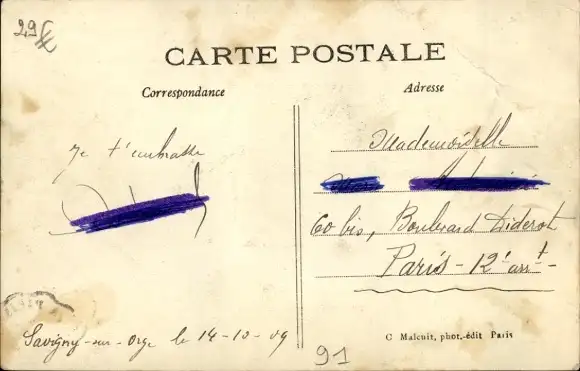 29€
CARTE POSTALE
Correspondance
Adresse
Je t'embrasse
Mademoiselle
60 bis, Boulevard Diderot
Paris - 12e arrt -
Savigny-sur-Orge le 14-10-09
91
C Malcuit, phot.-édit Paris